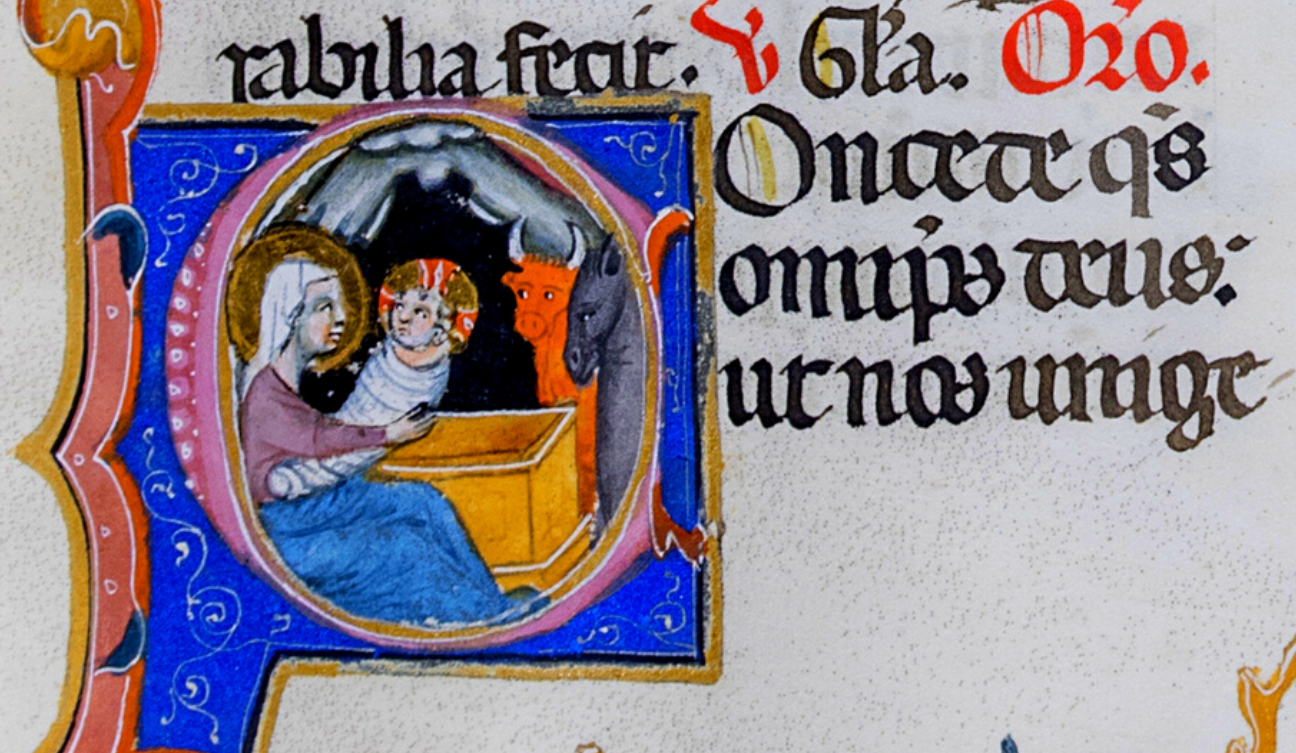 rabilia fecit. V Gl'a. Oro.
Oncede q's
omips deus:
ut nos unige